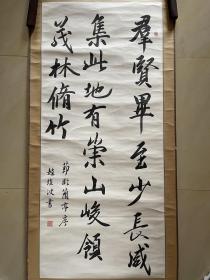 羣賢畢至少長咸
集此地有崇山峻領
茂林脩竹
節臨蘭亭序